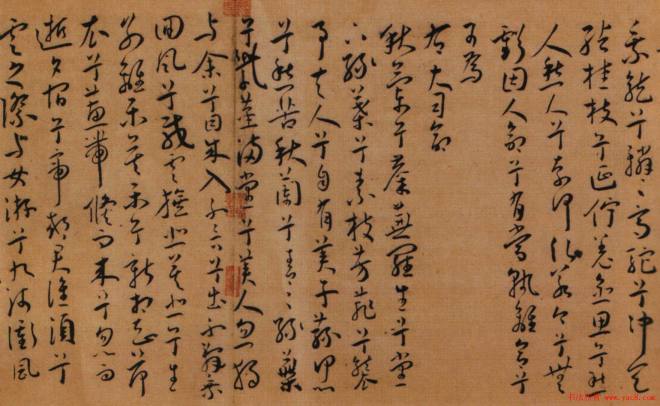 乘龍兮轔々高駝兮沖天
結桂枝兮延佇羌愈思兮愁
人愁人兮奈何願若今兮無
虧固人命兮有當孰離合兮
可為
右大司命
秋蘭兮蘪蕪羅生兮堂
下綠葉兮素枝芳菲菲兮襲
予夫人兮自有美子蓀何以
兮愁苦秋蘭兮青々綠葉
兮紫莖滿堂兮美人忽獨
與余兮目成入不言兮出不辭乘
回風兮載雲旗悲莫悲兮生
別離樂莫樂兮新相知荷
衣兮蕙帶儵而來兮忽而
逝夕宿兮帝郊君誰須兮
雲之際與女游兮九河衝風